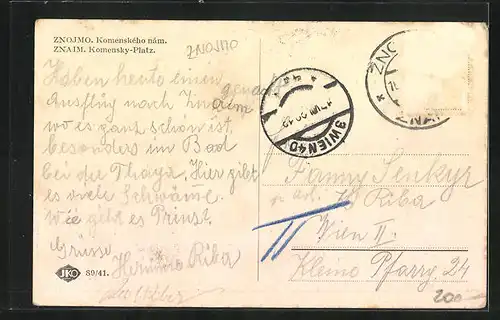 ZNOJMO. Komenského nám.
ZNAIM. Komensky-Platz.
ZNOJMO
Haben heute einen
Ausflug nach Znaim gemacht
wo es ganz schön ist,
besonders im Bad
bei der Thaya. Hier gibt
es viele Schwäme.
Wie geht es Prinzt.
Grüsse
Hermine Riba
JKO 89/41.
3 WIEN 40
ZNO
Fanny Senkyr
Riba
Wien II.
Kleine Pfarrg. 24
200